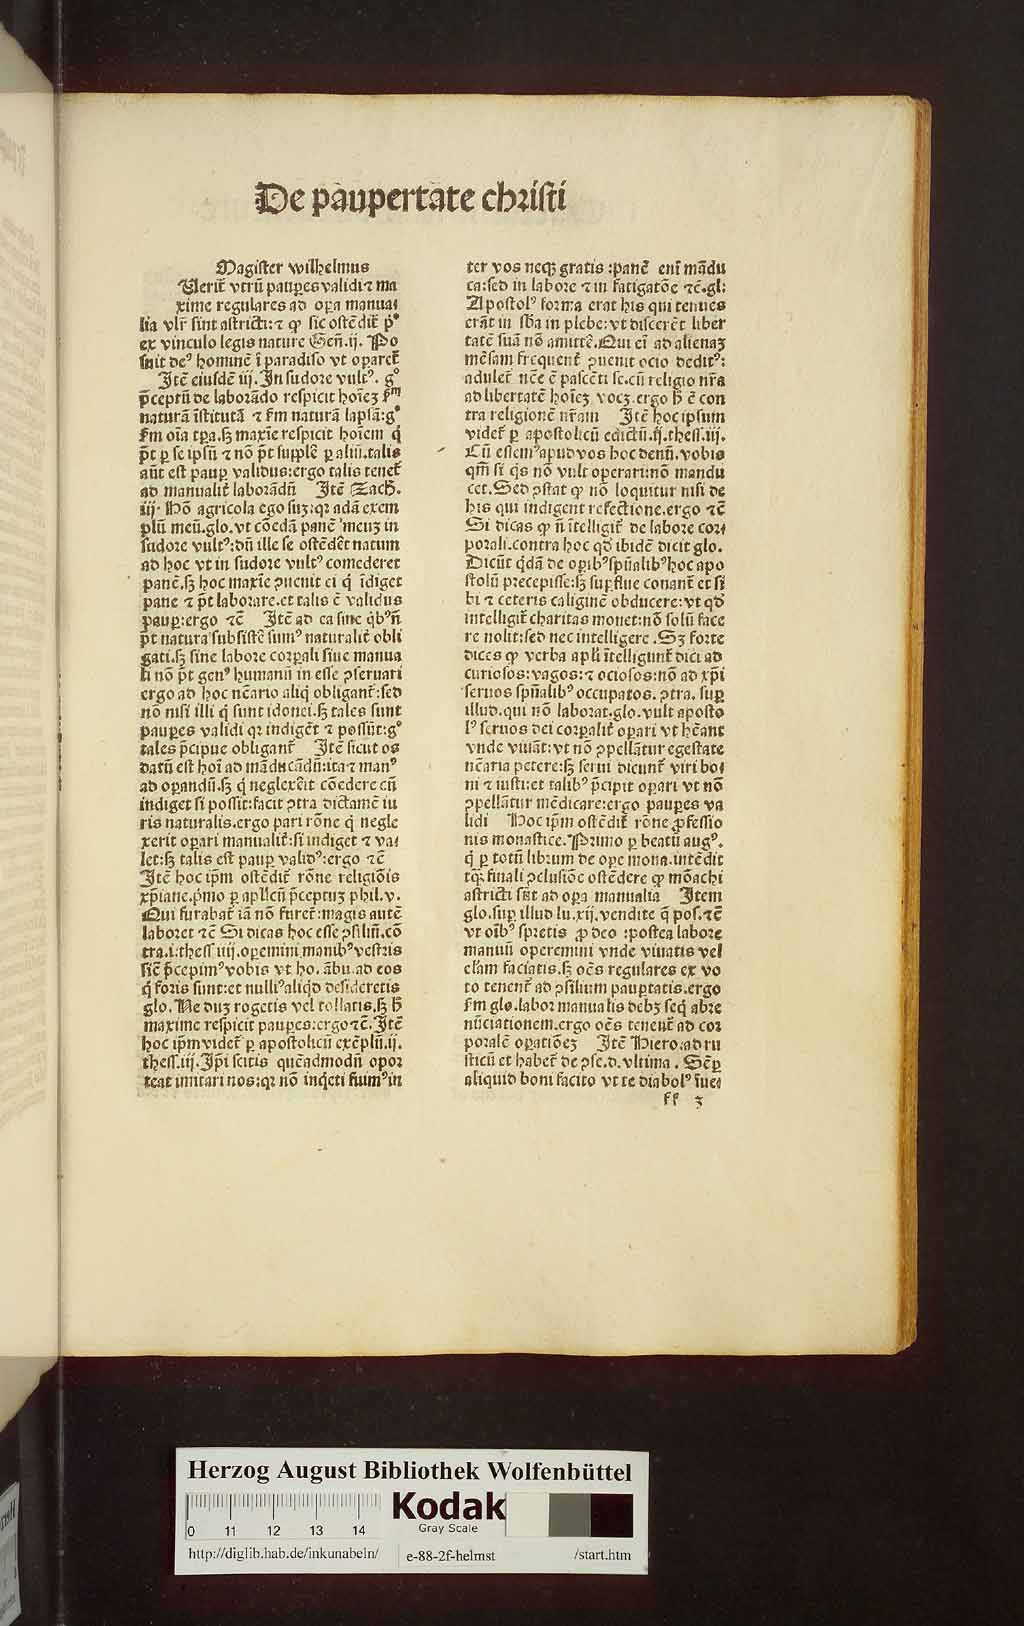 De paupertate christi
Magister wilhelmus
Uerit᷑ vtrū paup̲es validi ⁊ ma
xime regulares ad op̲a manua⸗
lia vlr̄ sint astricti:⁊ ꝙ sic ostēdit᷑ p̄º
ex vinculo legis nature Geñ.ij. Po
suit deꝰ hominē ī paradiso vt oparet᷑
Itē eiusdē iij. In sudore vultꝰ. gº
p̄ceptū de laborādo respicit hoīeꝫ ẜm
naturā īstitutā ⁊ ẜm naturā lapsā:gº
ẜm oīa tp̄a.sꝫ maxīe respicit hoīem q̇
p̄t ꝑ se ipsū ⁊ nō p̄t supplē ꝑ aliū.talis
aūt est paup̲ validus:ergo talis tenet᷑
ad manualit᷑ laborādū Itē Zacħ.
iij. Hō agricola ego suꝫ:qꝛ adā exem
plū meū.glo.vt cōedā panē meuꝫ in
sudore vultꝰ:dū ille se ostēdēt natum
ad hoc vt in sudore vultꝰ comederet
panē.sꝫ hoc maxīe ꝯuenit ei q̇ īdiget
pane ⁊ p̄t laborare.et talis ē validus
paup̲:ergo ⁊c̄ Itē ad ea sine q̇bꝰ ñ
p̄t natura subsistē sumꝰ naturalit᷑ obli
gati.sꝫ sine labore corꝑali siue manua
li nō p̄t genꝰ humanū in esse ꝯseruari
ergo ad hoc nc̄ario aliq̇ obligant᷑:sed
nō nisi illi q̇ sunt idonei.sꝫ tales sunt
paup̲es validi qꝛ indigēt ⁊ possūt:gº
tales p̄cipue obligant᷑ Itē sicut os
datū est hoī ad māducādū:ita ⁊ manꝰ
ad op̲andū.sꝫ q̇ neglexēit cōedere cū
indiget si possit:facit ꝯtra dictamē iu
ris naturalis.ergo pari rōne q̇ negle
xerit op̲ari manualit᷑:si indiget ⁊ va⸗
let:sꝫ talis est paup̲ validꝰ:ergo ⁊c̄
Itē hoc ip̄m ostēdit᷑ rōne religiōis
xp̄iane.p̄mo ꝑ ap̄licū p̄ceptuꝫ phil.v.
Qui furabat᷑ iā nō furet᷑:magis autē
laboret ⁊c̄ Si dicas hoc esse ꝯsiliū.cō
tra.i.thess iiij.op̲emini manibꝰ vestris
sic̄ p̄cepimꝰ vobis vt ho. ābu.ad eos
q̇ foris sunt:et nulliꝰ aliqd desideretis
glo. Ne duꝫ rogetis vel tollatis.sꝫ ħ
maxime respicit paup̲es:ergo ⁊c̄. Itē
hoc ip̄m videt᷑ ꝑ apostolicū exēplū.ij.
thess.iij. Ip̄i scitis quēadmodū opor
teat imitari nos:qꝛ nō inq̇eti fuimꝰ in
ter vos neqꝫ gratis :panē enī mādu
ca:sed in labore ⁊ in fatigatōe ⁊c̄.gl:
Apostolꝰ forma erat his qui tenues
erāt in sb̄a in plebe:vt discerēt liber
tatē suā nō amittē.Qui ei ad alienaꝫ
mēsam frequent᷑ ꝯuenit ocio deditꝰ:
adulet᷑ nc̄e ē pascēti se.cū religio nr̄a
ad libertatē hoīeꝫ vocꝫ.ergo ħ ē con
tra religionē nr̄am Itē hoc ipsum
videt᷑ ꝑ apostolicū edictū.ij.thess.iij.
Cū essemꝰ apud vos hoc denū.vobis
qm̄ si q̇s nō vult operari:nō mandu
cet.Sed ꝯstat ꝙ nō loquitur nisi de
his qui indigent refectione.ergo ⁊c̄
Si dicas ꝙ ñ ītelligit᷑ de labore cor⸗
porali.contra hoc qd̓ ibidē dicit glo.
Dicūt q̇dā de op̲ibꝰ spūalibꝰ hoc apo
stolū precepisse:sꝫ sup̲flue conant᷑ et si
bi ⁊ ceteris caliginē obducere:vt qd̓
intelligit᷑ charitas monet:nō solū face
re nolit:sed nec intelligere .Sꝫ forte
dices ꝙ verba ap̄li ītelligunt᷑ dici ad
curiosos:vagos:⁊ ociosos:nō ad xp̄i
seruos spūalibꝰ occupatos. ꝯtra. sup̲
illud.qui nō laborat.glo.vult aposto
lꝰ seruos dei corꝑalit᷑ op̲ari vt hēant
vnde viuāt:vt nō ꝯpellātur egestate
nc̄aria petere:sꝫ serui dicunt᷑ viri bo⸗
ni ⁊ iusti:et talibꝰ p̄cipit op̲ari vt nō
ꝯpellātur mēdicare:ergo paup̲es va
lidi Hoc ip̄m ostēdit᷑ rōne ꝓfessio
nis monastice.Primo ꝑ beatū augꝰ.
q̇ ꝑ totū librum de op̲e mona.intēdit
tq̄ꝫ finali ꝯclusiōe ostēdere ꝙ mōachi
astricti sūt ad op̲a manualia Item
glo.sup̲ illud lu.xij.vendite q̄ pos.⁊c̄
vt oībꝰ spretis ꝓ deo :postea labore
manuū operemini vnde viuatis vel
elām faciatis.sꝫ oēs regulares ex vo
to tenent᷑ ad ꝯsilium paup̲tatis.ergo
ẜm glo.labor manualis debꝫ seq̇ abre
nūciationem.ergo oēs tenent᷑ ad cor
poralē op̲atiōeꝫ Itē Hiero.ad ru
sticū et habet᷑ de ꝯse.d.vltima . Semp̲
aliquid boni facito vt te diabolꝰ īue⸗
ff 3
Herzog August Bibliothek Wolfenbüttel
0 11 12 13 14
Kodak
Gray Scale
http://diglib.hab.de/inkunabeln/ e-88-2f-helmst /start.htm